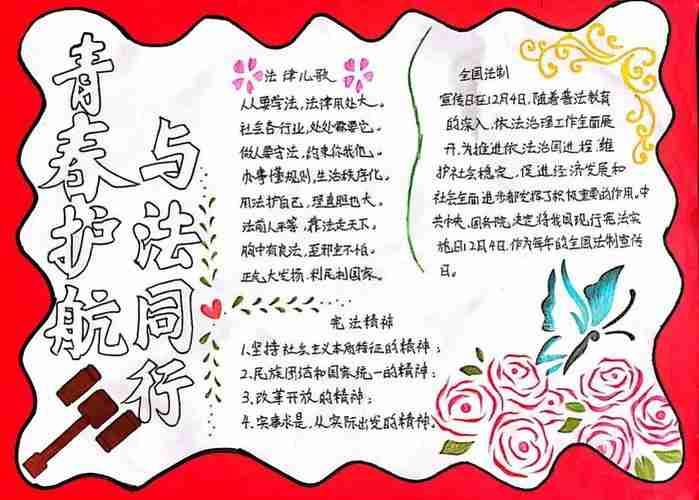 青春护航
与法同行
法律儿歌
人人要守法,法律用处大。
社会各行业,处处需要它。
做人要守法,约束你我他。
办事懂规则,生活秩序化。
用法护自己,理直胆也大。
法前人平等,靠法走天下。
胸中有良法,至邪全不怕。
正气大发扬,利民利国家。
全国法制
宣传日在12月4日,随着普法教育
的深入,依法治理工作全面展
开,为推进依法治国进程,维
护社会稳定,促进经济发展和
社会全面进步都发挥了积极重要的作用。中
共中央、国务院决定将我国现行宪法实
施日12月4日,作为每年的全国法制宣传
日。
宪法精神
1.坚持社会主义本质特征的精神;
2.民族团结和国家统一的精神;
3.改革开放的精神;
4.实事求是,从实际出发的精神。